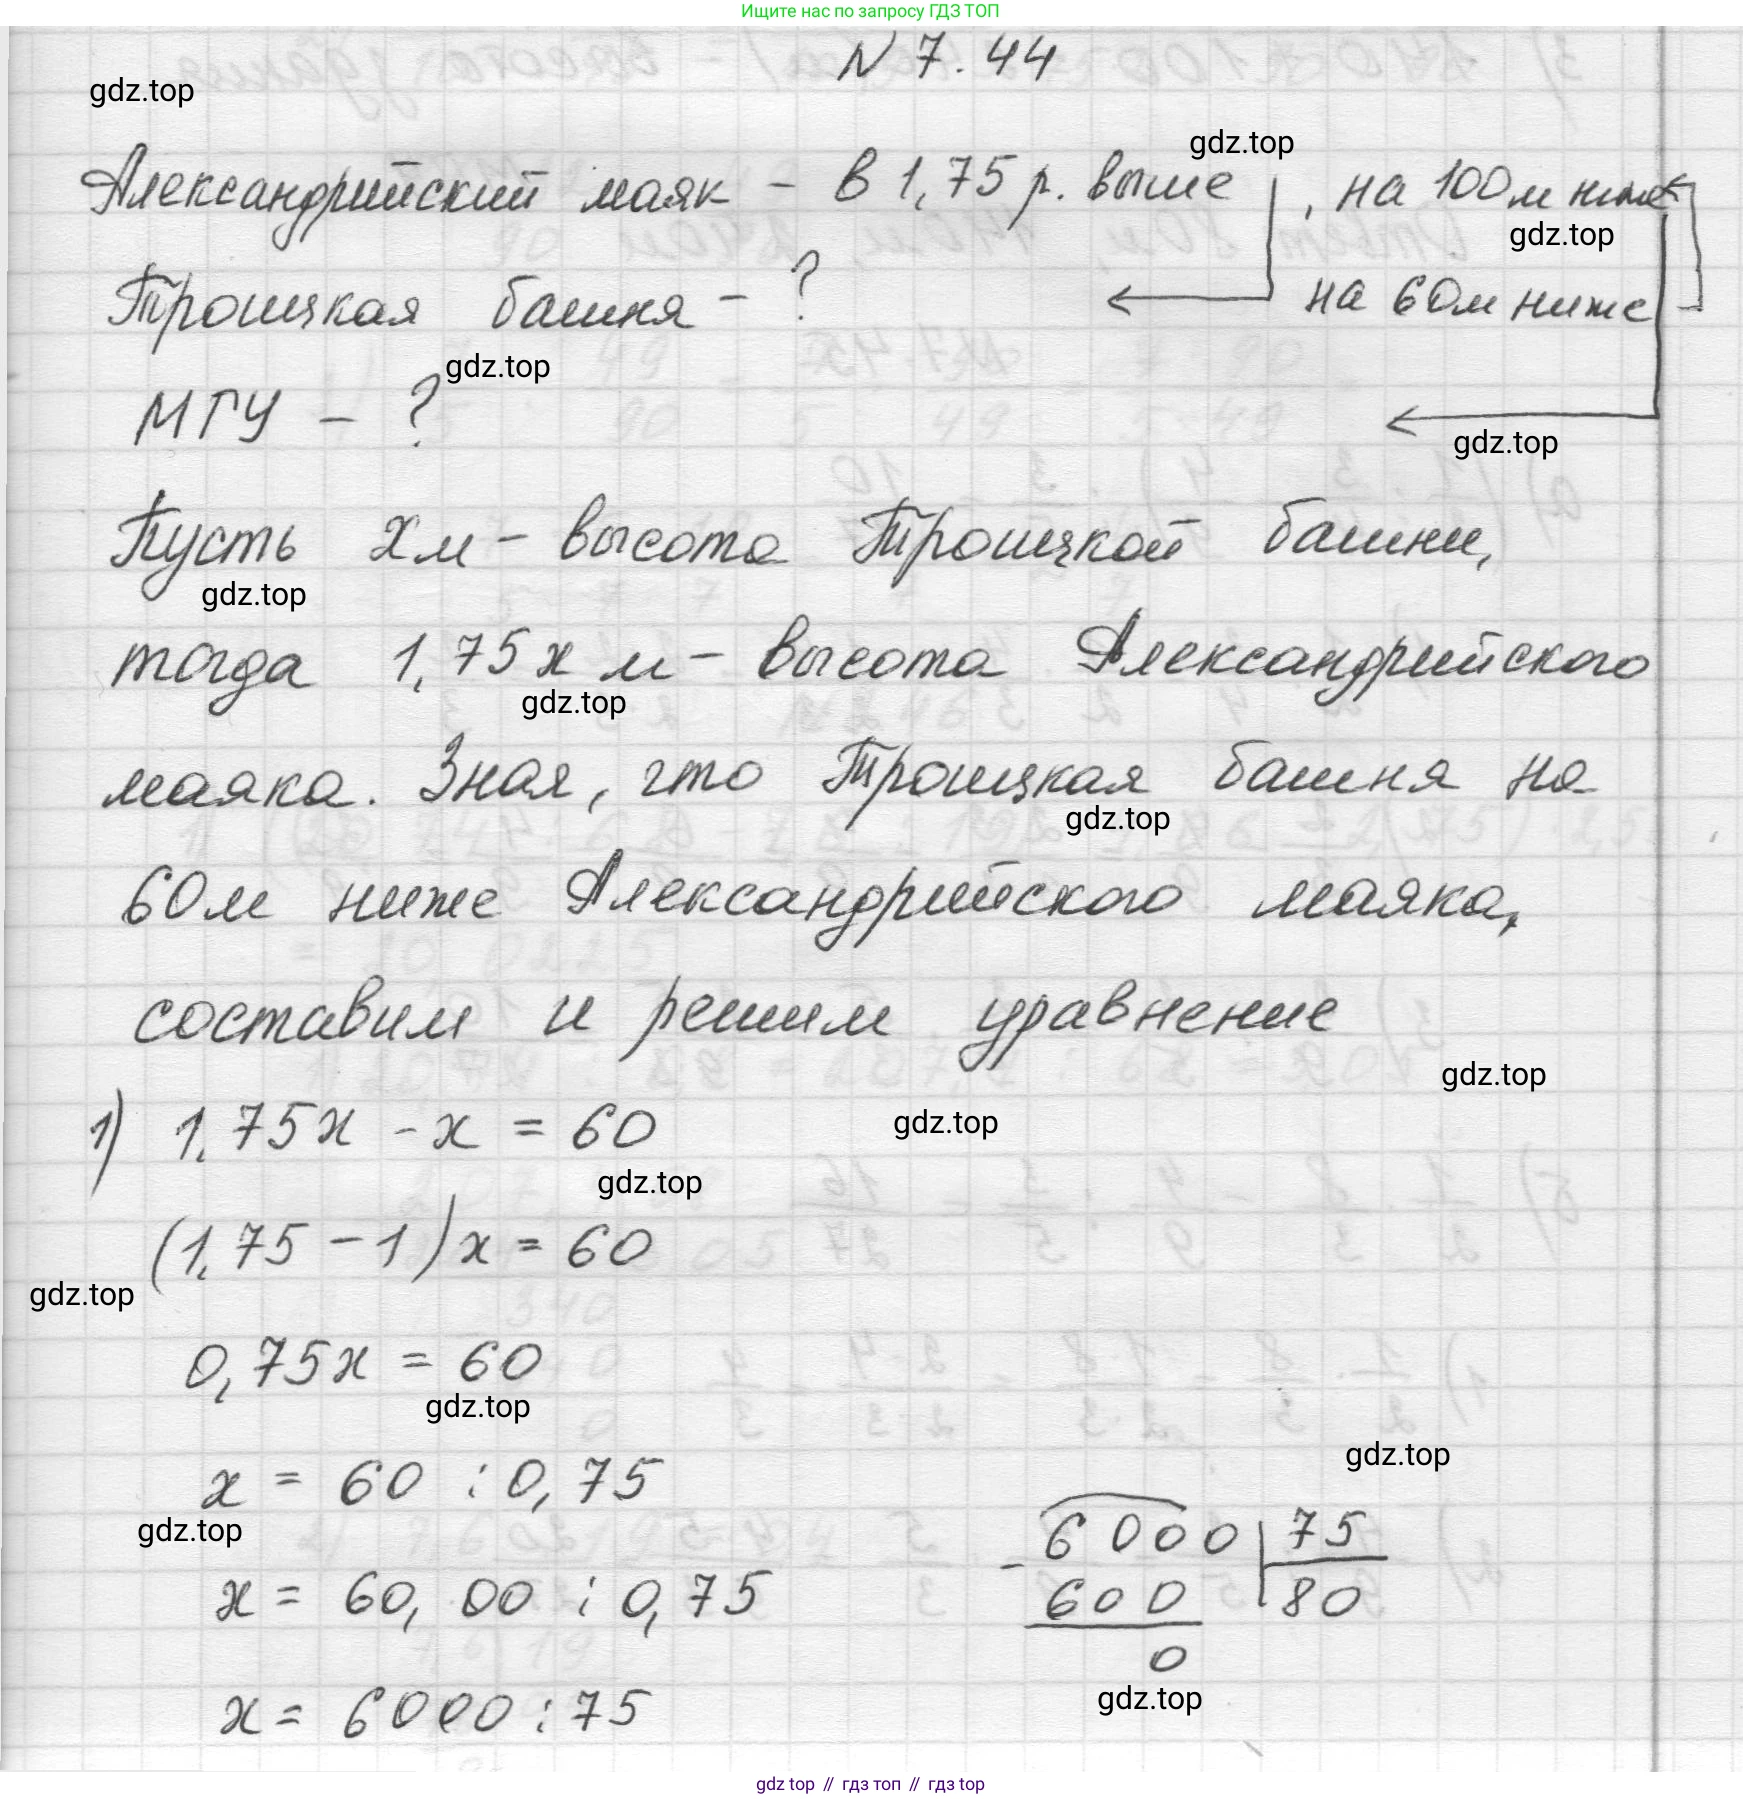 Ищите нас по запросу ГДЗ ТОП
N 7.44
gdz.top
gdz.top
Александрийский маяк - в 1,75 р. выше, на 100м ниже
gdz.top
Троицкая башня - ? на 60м ниже
gdz.top
МГУ - ?
gdz.top
Пусть x м - высота Троицкой башни,
gdz.top
тогда 1,75x м - высота Александрийского
gdz.top
маяка. Зная, что Троицкая башня на
gdz.top
60м ниже Александрийского маяка,
составим и решим уравнение
gdz.top
1) 1,75x - x = 60
gdz.top
gdz.top
(1,75 - 1)x = 60
gdz.top
0,75x = 60
gdz.top
gdz.top
x = 60 : 0,75
gdz.top
x = 60,00 : 0,75
x = 6000 : 75
6000 | 75
- 600 | 80
0
gdz.top
gdz top // гдз топ // гдз top